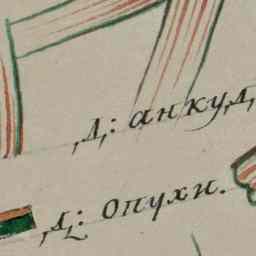 Д: анкуд
Д: Опухи.